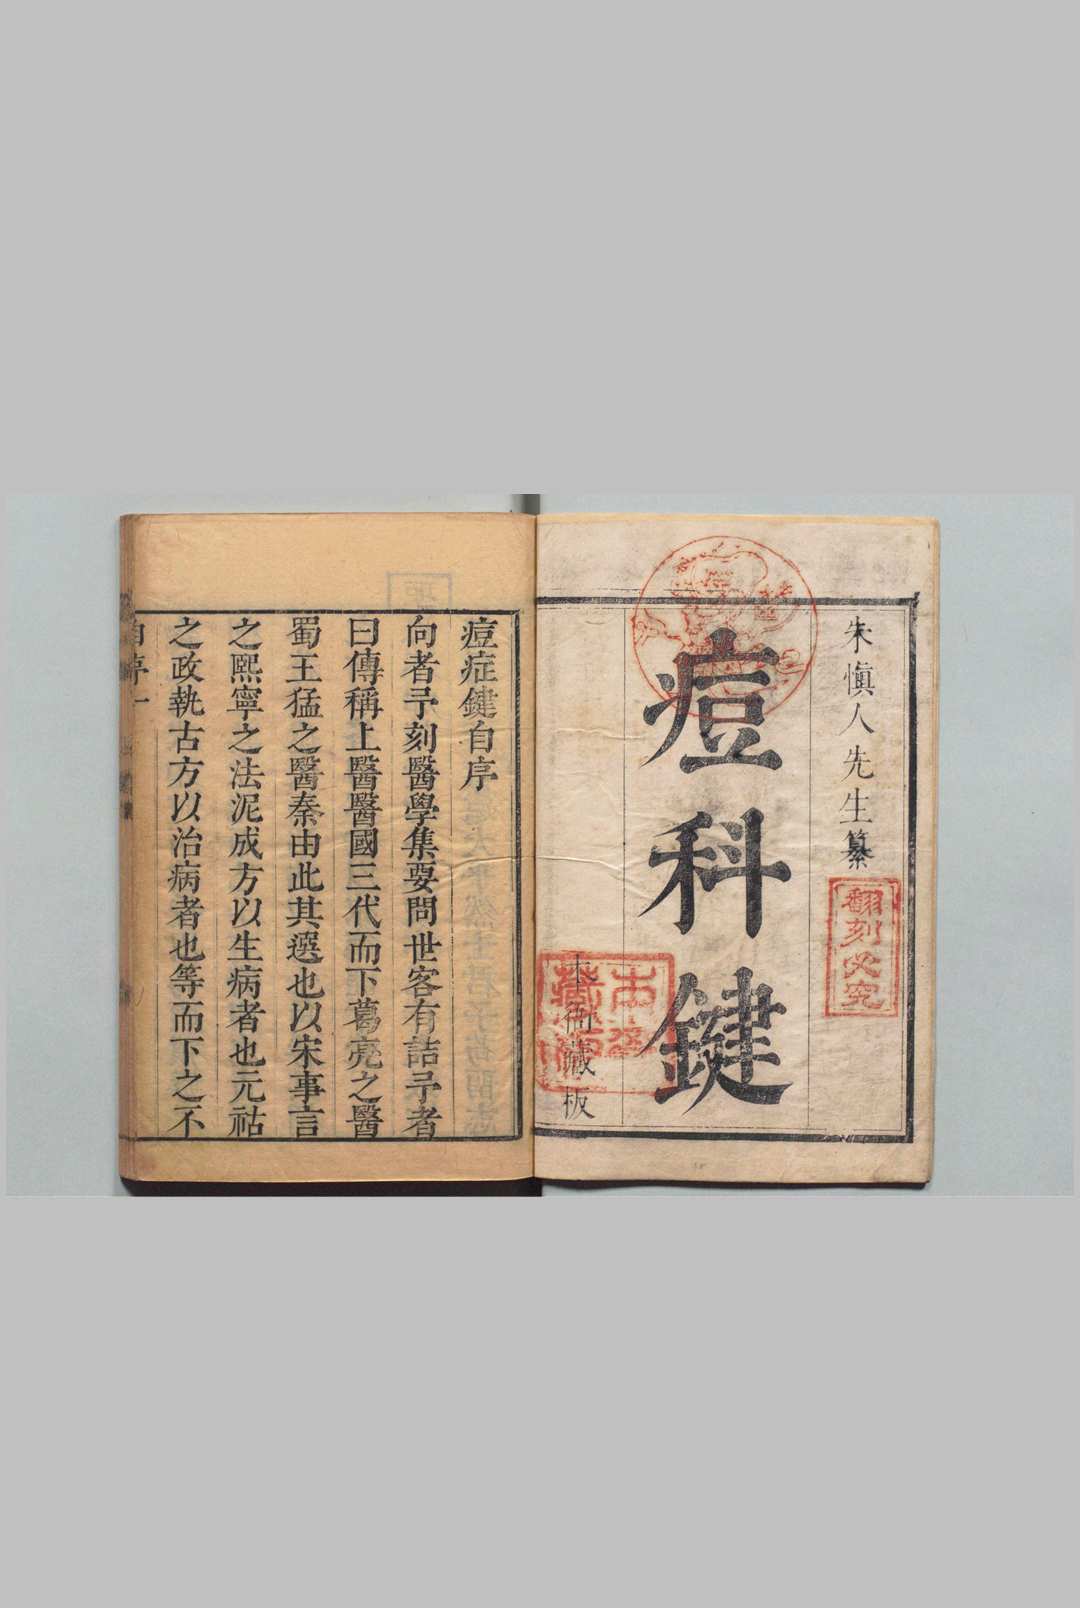 朱愼人先生纂
翻刻必究
痘科鍵
本衙藏板
痘症鍵自序
向者予刻醫學集要問世客有詰予者
曰傳稱上醫醫國三代而下葛亮之醫
蜀王猛之醫秦由此其選也以宋事言
之熙寧之法泥成方以生病者也元祐
之政執古方以治病者也等而下之不
自序一